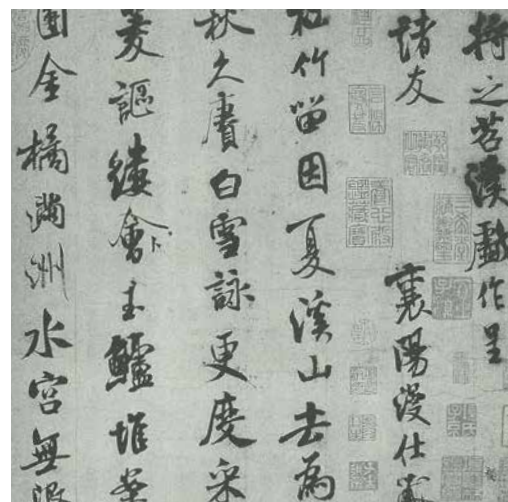 將之苕溪戲作呈
諸友
襄陽漫仕黻
松竹留因夏溪山去為
秋久賡白雪詠更度采
菱謳縷會玉鱸堆案
團金橘滿洲水宮無限